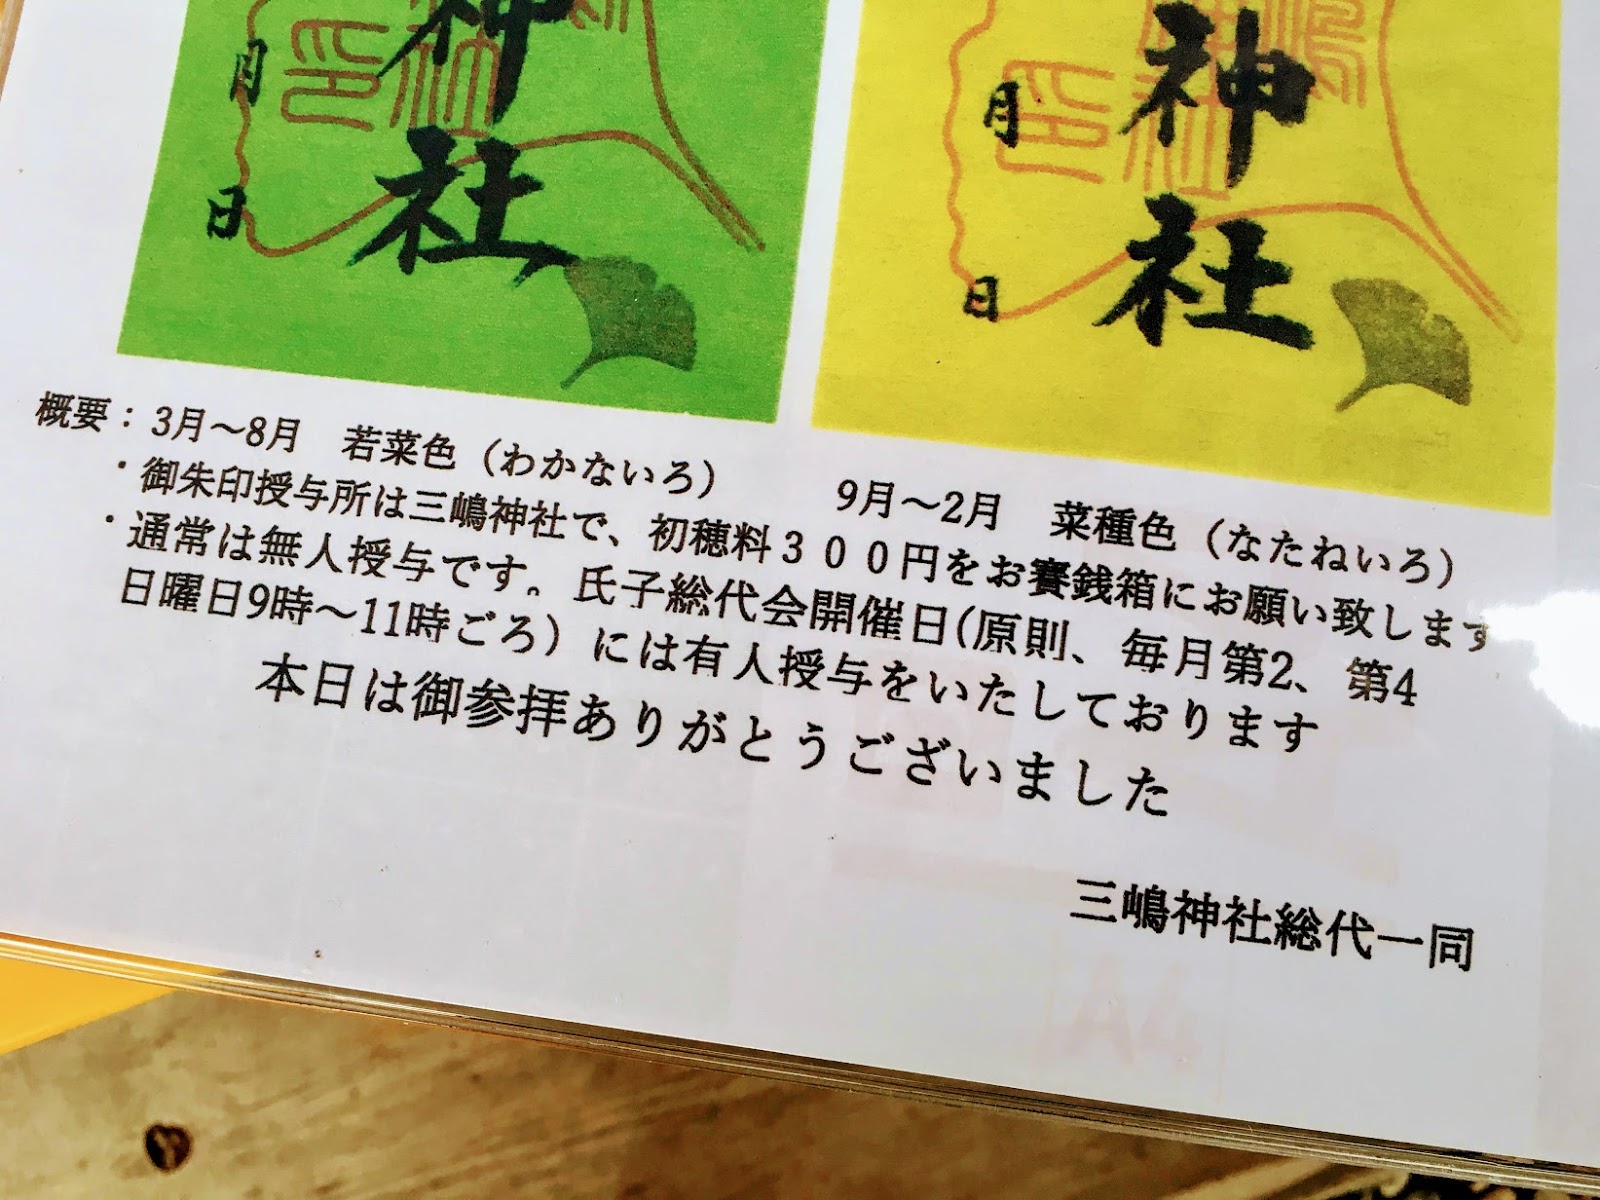 神社
月
日
神社
月
日
概要：3月～8月　若菜色（わかないろ）　　　9月～2月　菜種色（なたねいろ）
・御朱印授与所は三嶋神社で、初穂料３００円をお賽銭箱にお願い致します
・通常は無人授与です。氏子総代会開催日(原則、毎月第2、第4
日曜日9時～11時ごろ）には有人授与をいたしております
本日は御参拝ありがとうございました
三嶋神社総代一同